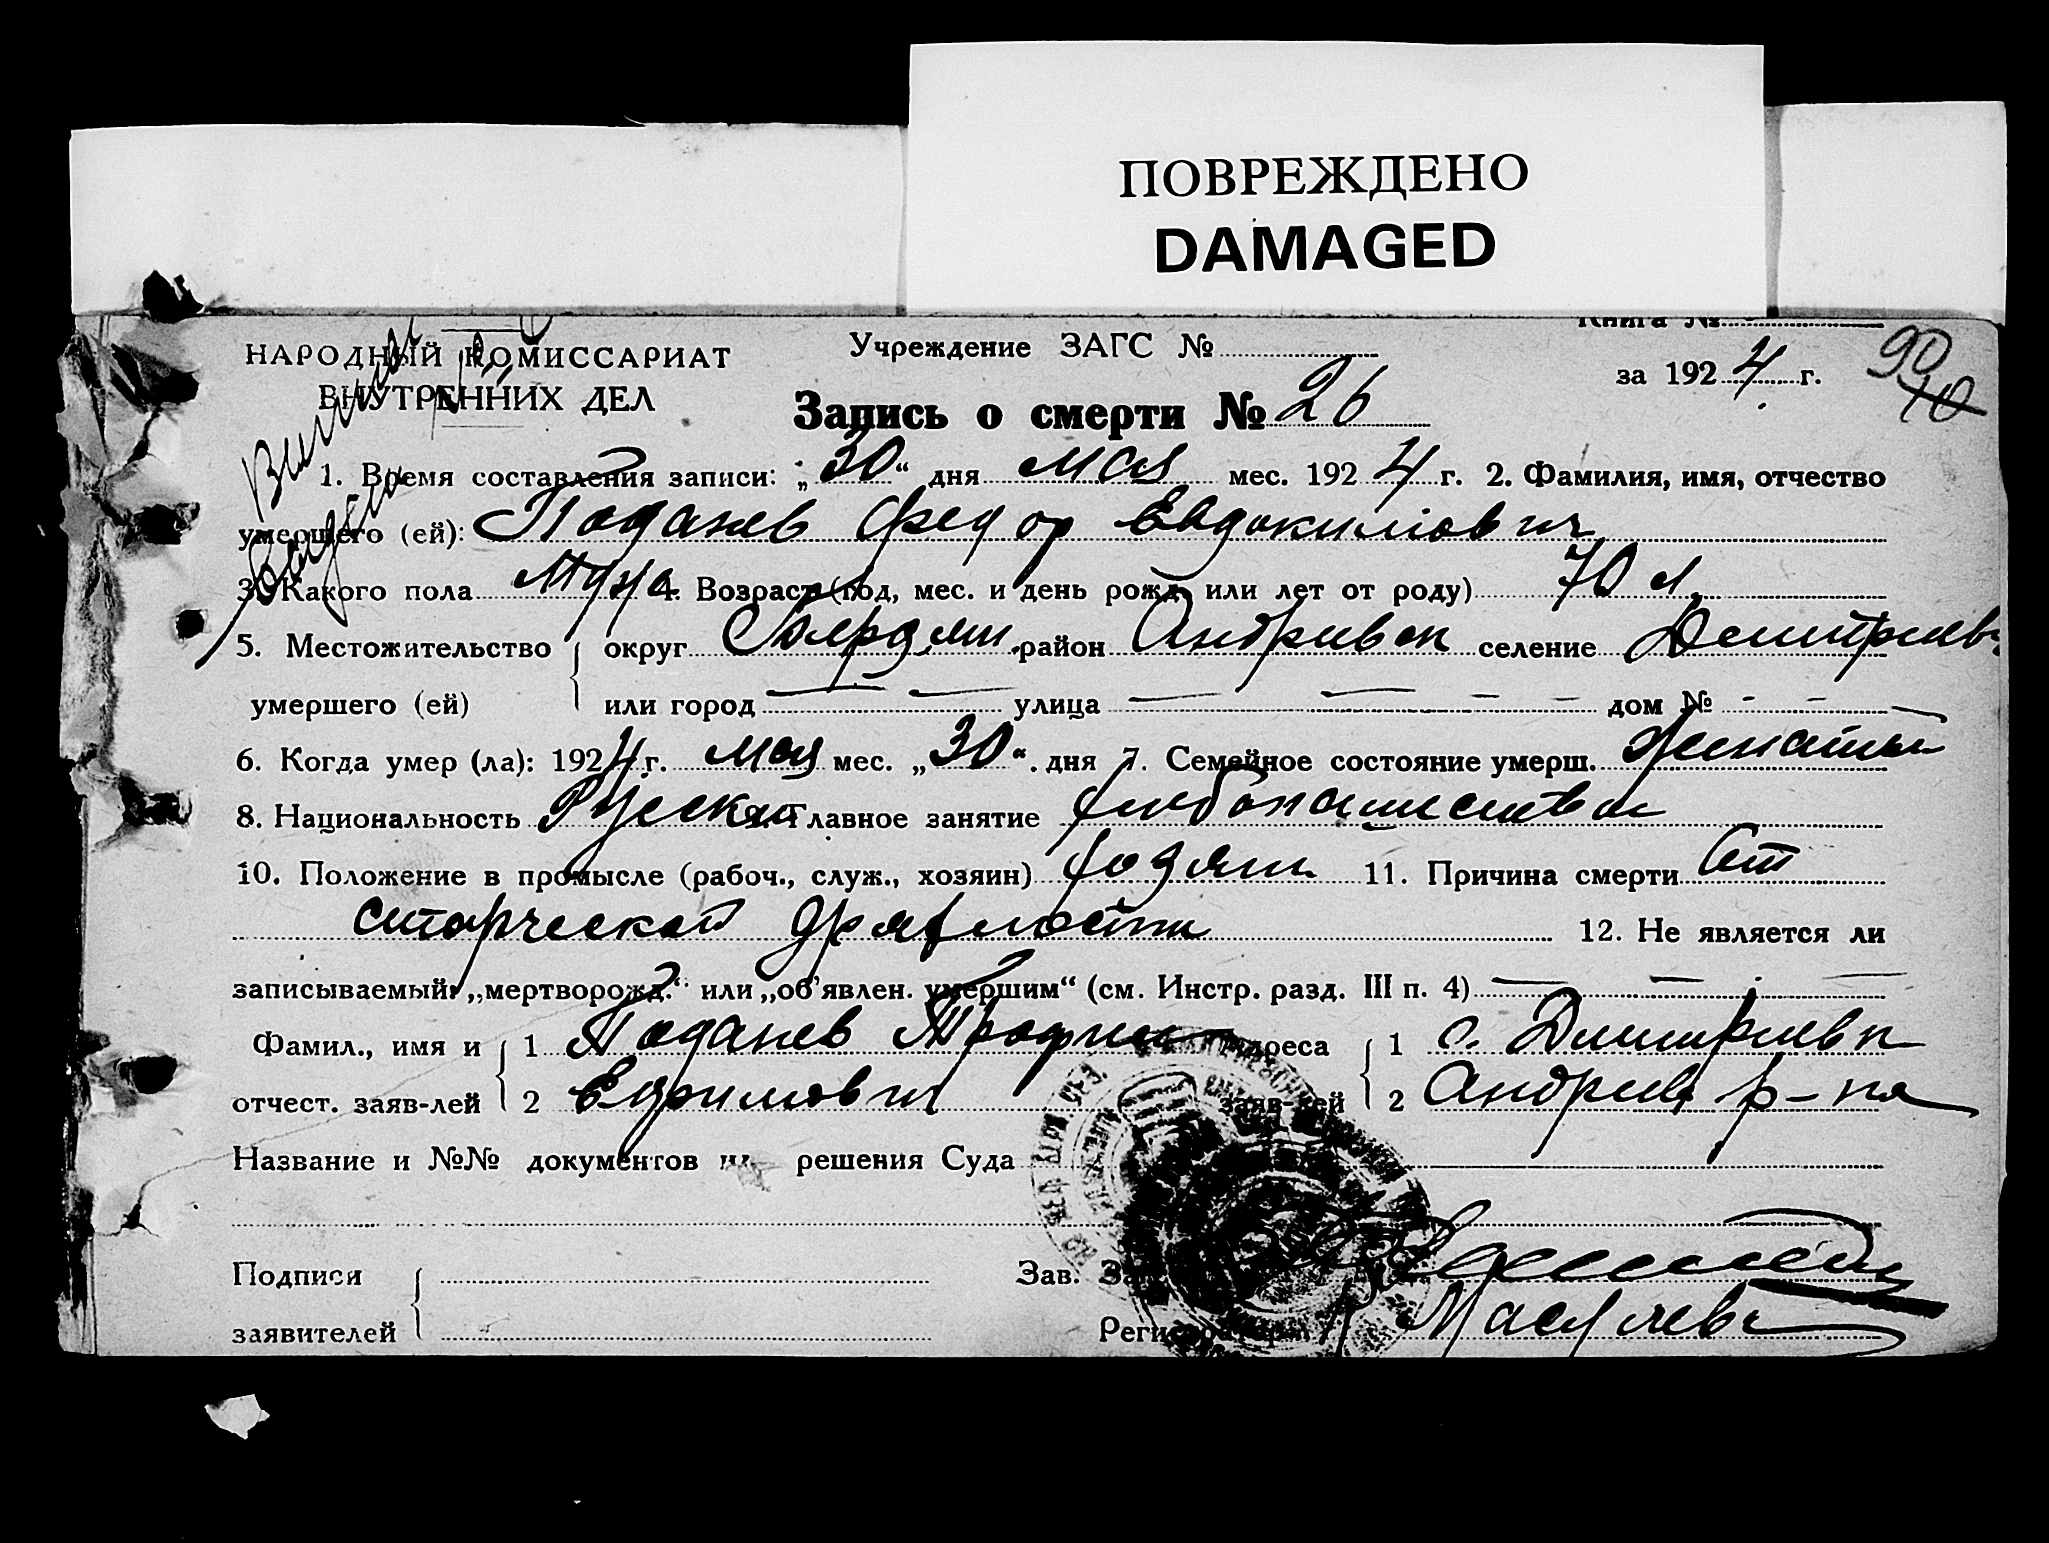 ПОВРЕЖДЕНО
DAMAGED
Книга №
НАРОДНЫЙ КОМИССАРИАТ
ВНУТРЕННИХ ДЕЛ
Учреждение ЗАГС №
за 1924 г.
90
40
Запись о смерти № 26
1. Время составления записи: „30“ дня мая мес. 1924 г. 2. Фамилия, имя, отчество
умершего (ей): Поданев Федор Евдокимович
3. Какого пола Муж. 4. Возраст (год, мес. и день рожд. или лет от роду) 70 л.
5. Местожительство округ Бердян. район Андривск селение Дмитриевк
умершего (ей) или город — — улица — — - - дом № - - —
6. Когда умер (ла): 1924 г. мая мес. „30“ дня 7. Семейное состояние умерш. Женатый
8. Национальность Руский 9. Главное занятие хлебопашество
10. Положение в промысле (рабоч., служ., хозяин) хозяин 11. Причина смерти От
старческой дряхлости 12. Не является ли
записываемый: „мертворожд.“ или „об’явлен. умершим“ (см. Инстр. разд. III п. 4) — — —
Фамил., имя и 1 Поданев Трофим Адреса 1 с. Дмитриевк
отчест. заяв-лей 2 Ефимович заяв-лей 2 Андрив р-на
Название и №№ документов и решения Суда
Подписи Зав.
заявителей Регистратор